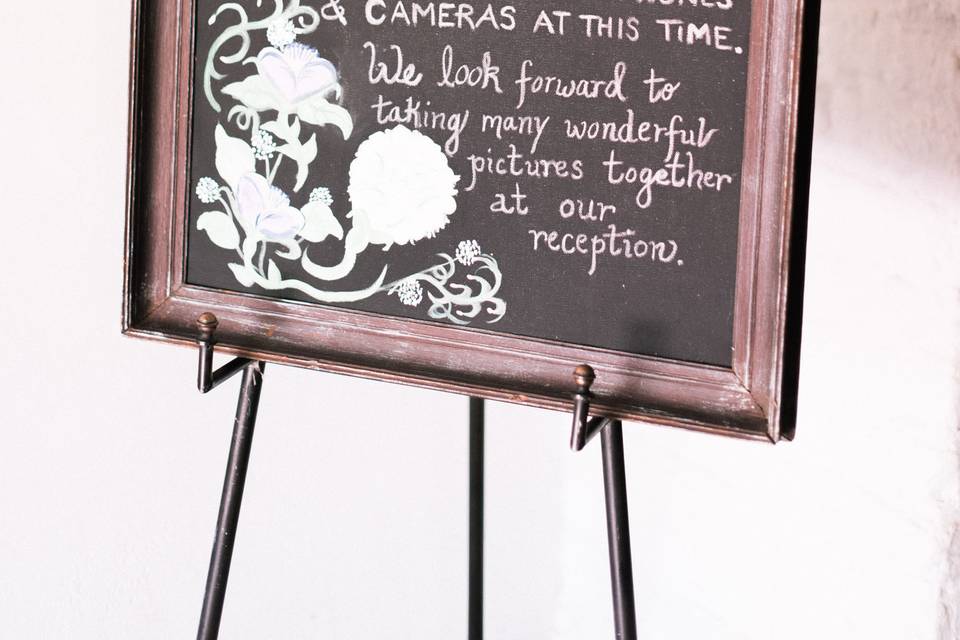 & CAMERAS AT THIS TIME.
We look forward to
taking many wonderful
pictures together
at our
reception.